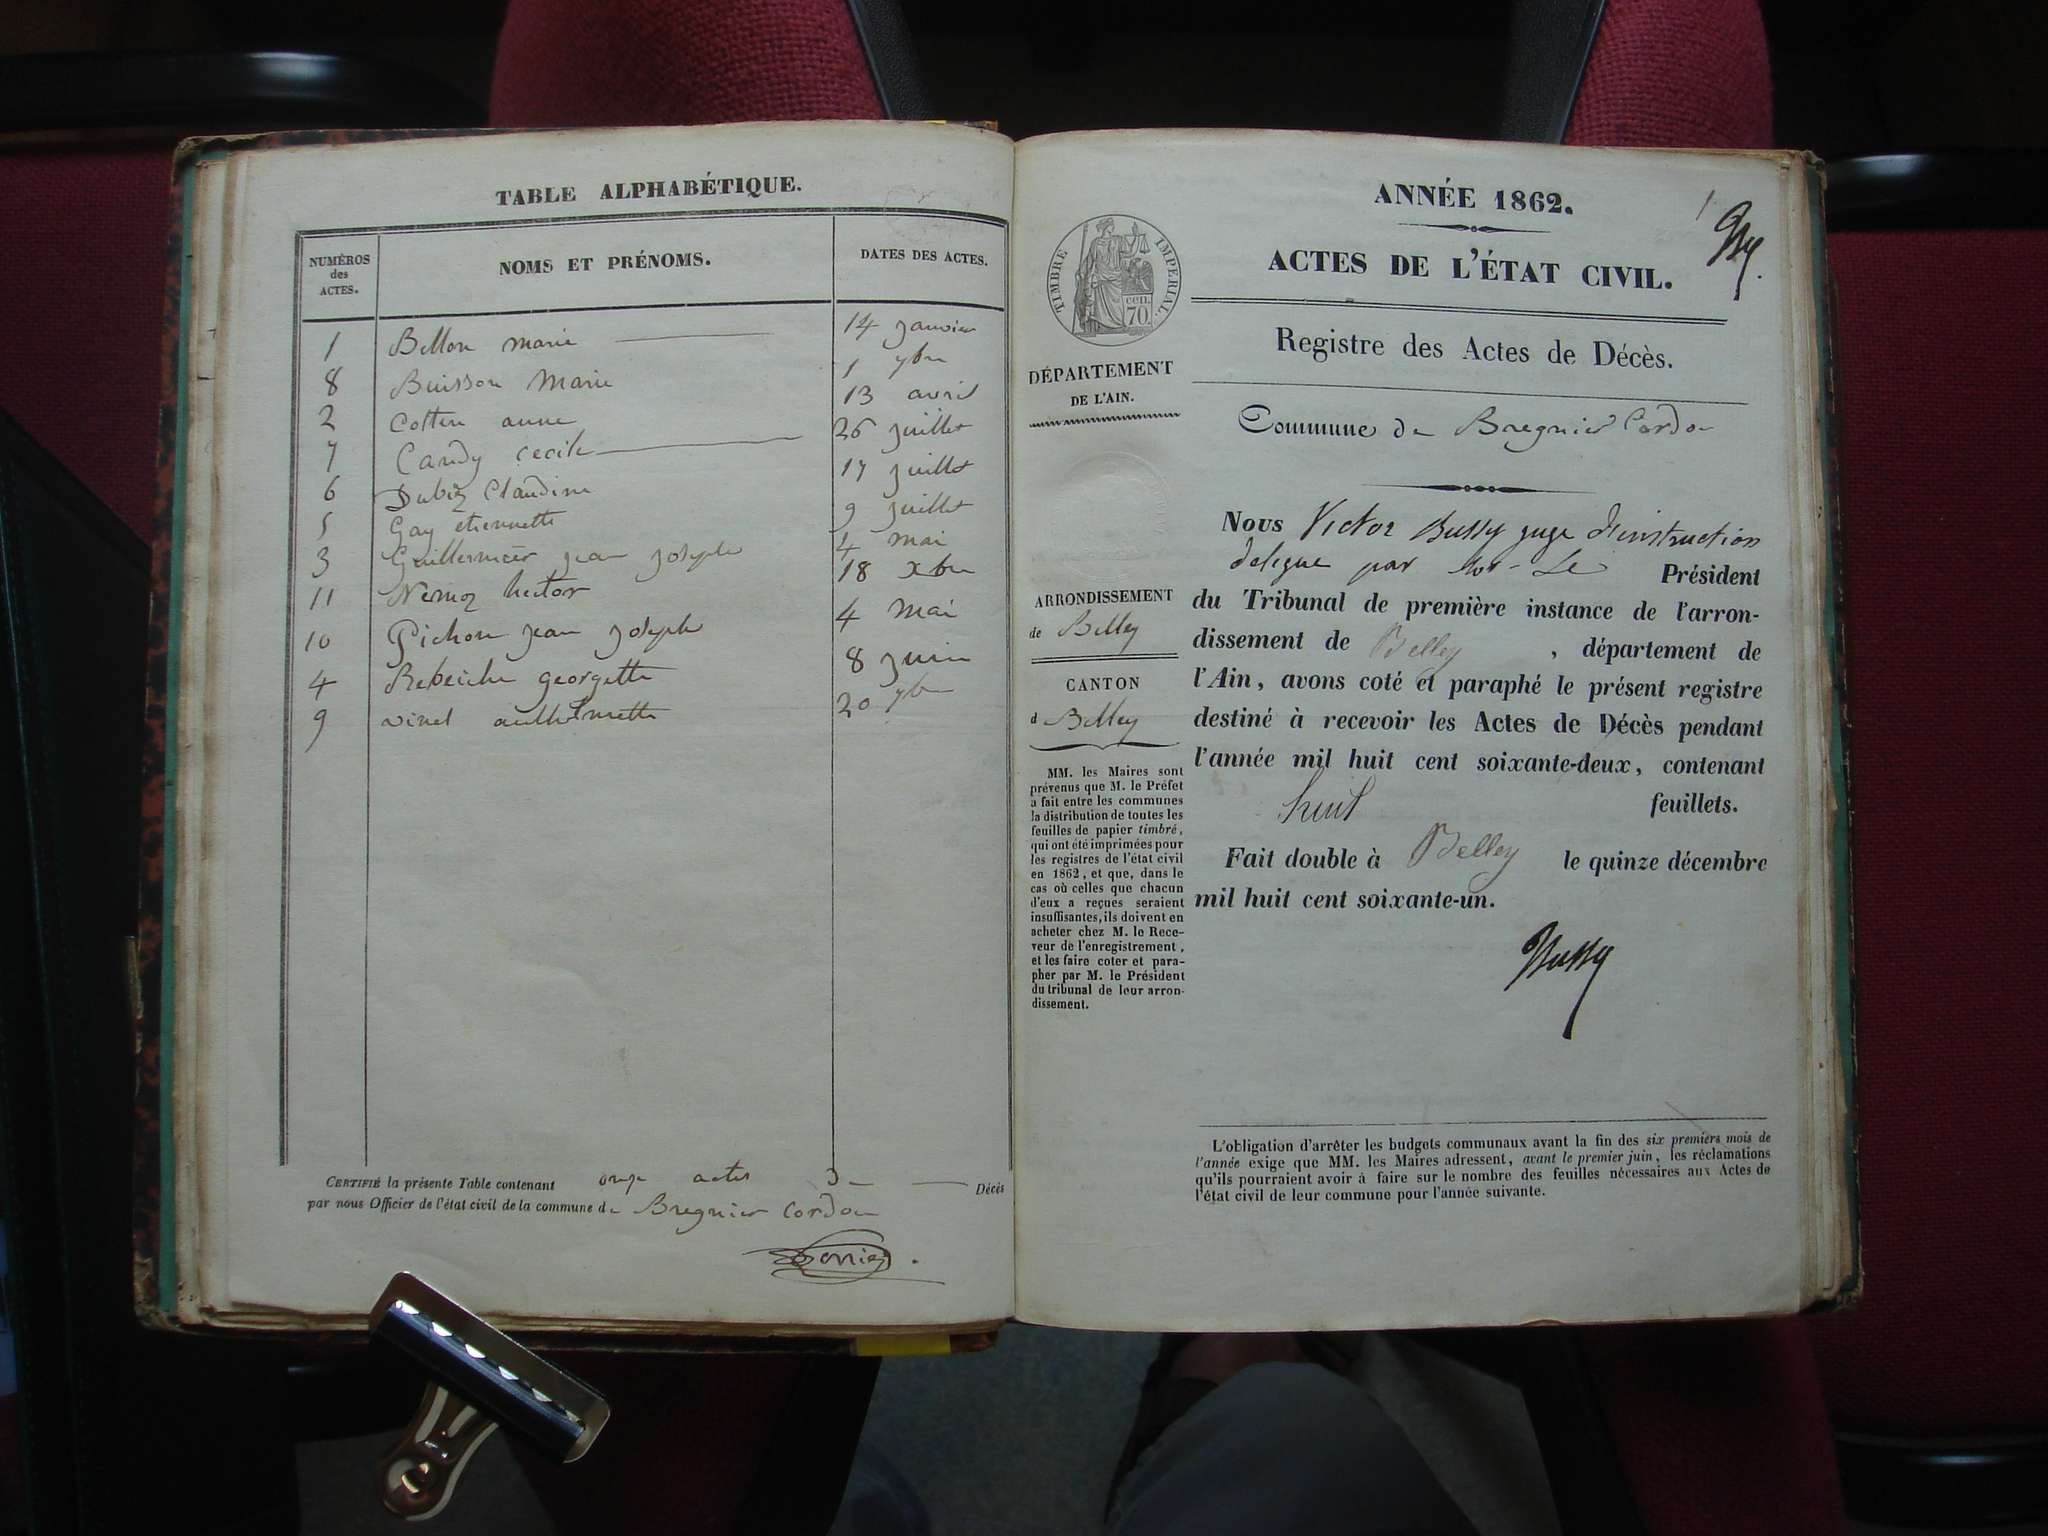 TABLE ALPHABÉTIQUE.
NUMÉROS
des
ACTES.
NOMS ET PRÉNOMS.
DATES DES ACTES.
1 Bellon marie 14 janvier
8 Buisson Marie 1 7bre
2 Cotten anne 13 avril
7 Candy cecile 26 juillet
6 Claudine 17 juillet
5 Gay étiennette 9 juillet
3 Guillermier jean joseph 4 mai
11 Nemoz hector 18 xbre
10 Pichon jean joseph 4 Mai
4 georgette 8 juin
9 vinel 20 7bre
CERTIFIÉ la présente Table contenant onze actes de Décès
par nous Officier de l'état civil de la commune de Bregnier Cordon
ANNÉE 1862.
1
ACTES DE L'ÉTAT CIVIL.
TIMBRE IMPÉRIAL.
cen.
70.
Registre des Actes de Décès.
DÉPARTEMENT
DE L'AIN.
Commune de Bregnier Cordon
Nous Victor Bussy juge d'instruction
délégué par Le Président
du Tribunal de première instance de l'arron-
dissement de Belley, département de
l'Ain, avons coté et paraphé le présent registre
destiné à recevoir les Actes de Décès pendant
l'année mil huit cent soixante-deux, contenant
huit feuillets.
Fait double à Belley le quinze décembre
mil huit cent soixante-un.
Bussy
ARRONDISSEMENT
de Belley
CANTON
d Belley
MM. les Maires sont
prévenus que M. le Préfet
a fait entre les communes
la distribution de toutes les
feuilles de papier timbré,
qui ont été imprimées pour
les registres de l'état civil
en 1862, et que, dans le
cas où celles que chacun
d'eux a reçues seraient
insuffisantes, ils doivent en
acheter chez M. le Rece-
veur de l'enregistrement,
et les faire coter et para-
pher par M. le Président
du tribunal de leur arron-
dissement.
L'obligation d'arrêter les budgets communaux avant la fin des six premiers mois de
l'année exige que MM. les Maires adressent, avant le premier juin, les réclamations
qu'ils pourraient avoir à faire sur le nombre des feuilles nécessaires aux Actes de
l'état civil de leur commune pour l'année suivante.